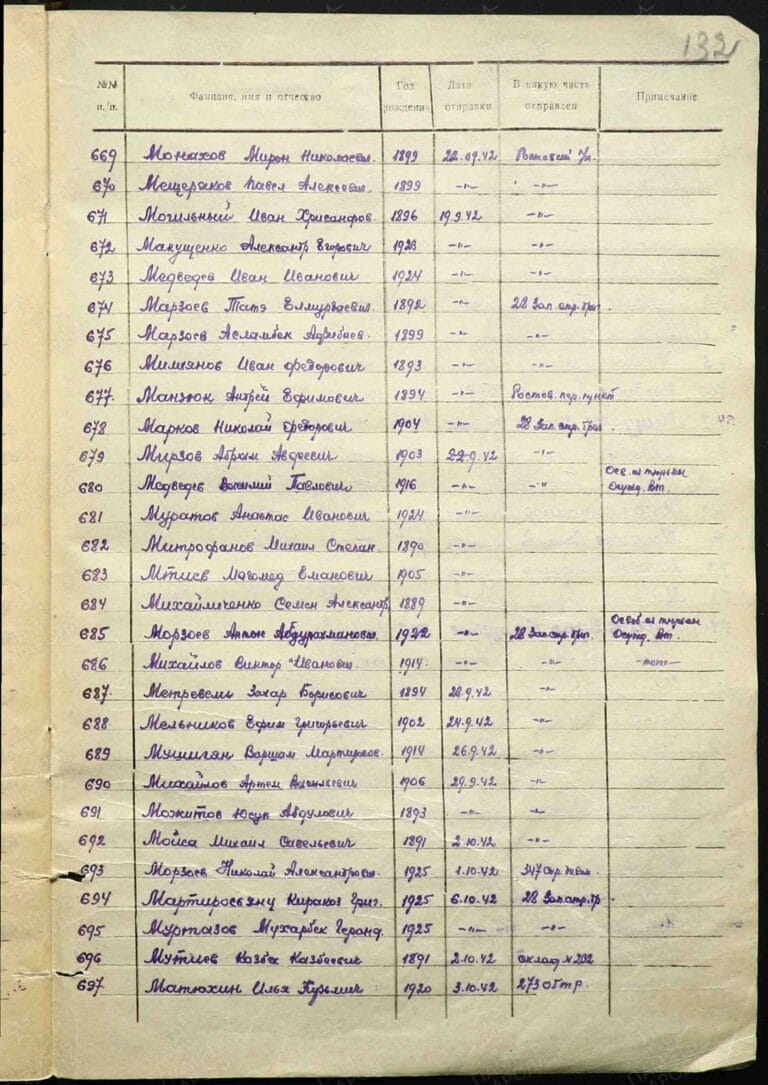 132
№№ п./п. Фамилия, имя и отчество Год рождения Дата отправки В какую часть отправлен Примечание
669 Монахов Мирон Николаевич. 1899 22.09.42 Ростовский п/п.
670 Мещеряков Павел Алексеевич. 1899 -"- -"-
671 Могильный Иван Хрисанфов. 1896 19.9.42 -"-
672 Макущенко Александр Егорович 1923 -"- -"-
673 Медведев Иван Иванович 1924 -"- -"-
674 Марзоев Татэ 1892 -"- 28 Зап. стр. бриг.
675 Марзоев Асламбек 1899 -"- -"-
676 Милиянов Иван Федорович 1893 -"- -"-
677. Манзюк Андрей Ефимович 1894 -"- Ростов. пер. пункт
678 Марков Николай Федорович 1904 -"- 28 Зап. стр. бриг
679 Мирзов Абрам Авдеевич 1903 22.9.42 -"-
Осв. из тюрьмы
680 Медведев Василий Павлович 1916 -"- -"- Осужд. Вт.
681 Муратов Анастас Иванович 1924 -"-
682 Митрофанов Михаил Степан. 1890 -"-
683 Мтиев Магомед Еманович 1905 -"-
684 Михайличенко Семен Александр. 1889 -"-
Освоб. из тюрьмы
685 Морзоев Антон Абдурахманович. 1922 -"- 28 Зап. стр. бриг. Осужд. Вт.
686 Михайлов Виктор Иванович. 1914. -"- -"- -тоже-
687. Метревели Захар Борисович 1894 22.9.42 -"-
688 Мельников Ефим Григорьевич 1902 24.9.42 -"-
689 Мушигян Варшам Мартиросов. 1914 26.9.42 -"-
690 Михайлов Артем Васильевич 1906 29.9.42 -"-
691 Можитов Юсуп Абдулович 1893 -"- -"-
692 Мойса Михаил Савельевич 1891 2.10.42 -"-
693 Морзоев Николай Александрович. 1925 1.10.42 347 стр. див.
694 Мартиросьянц Киракоз Григ. 1925 6.10.42 28 Зап. стр. бр.
695 Муртазов Мухарбек 1925 -"- -"-
696 Мутиев Козбек Казбеевич 1891 2.10.42 склад № 292
697. Матюхин Илья Кузьмич 1920 3.10.42 273